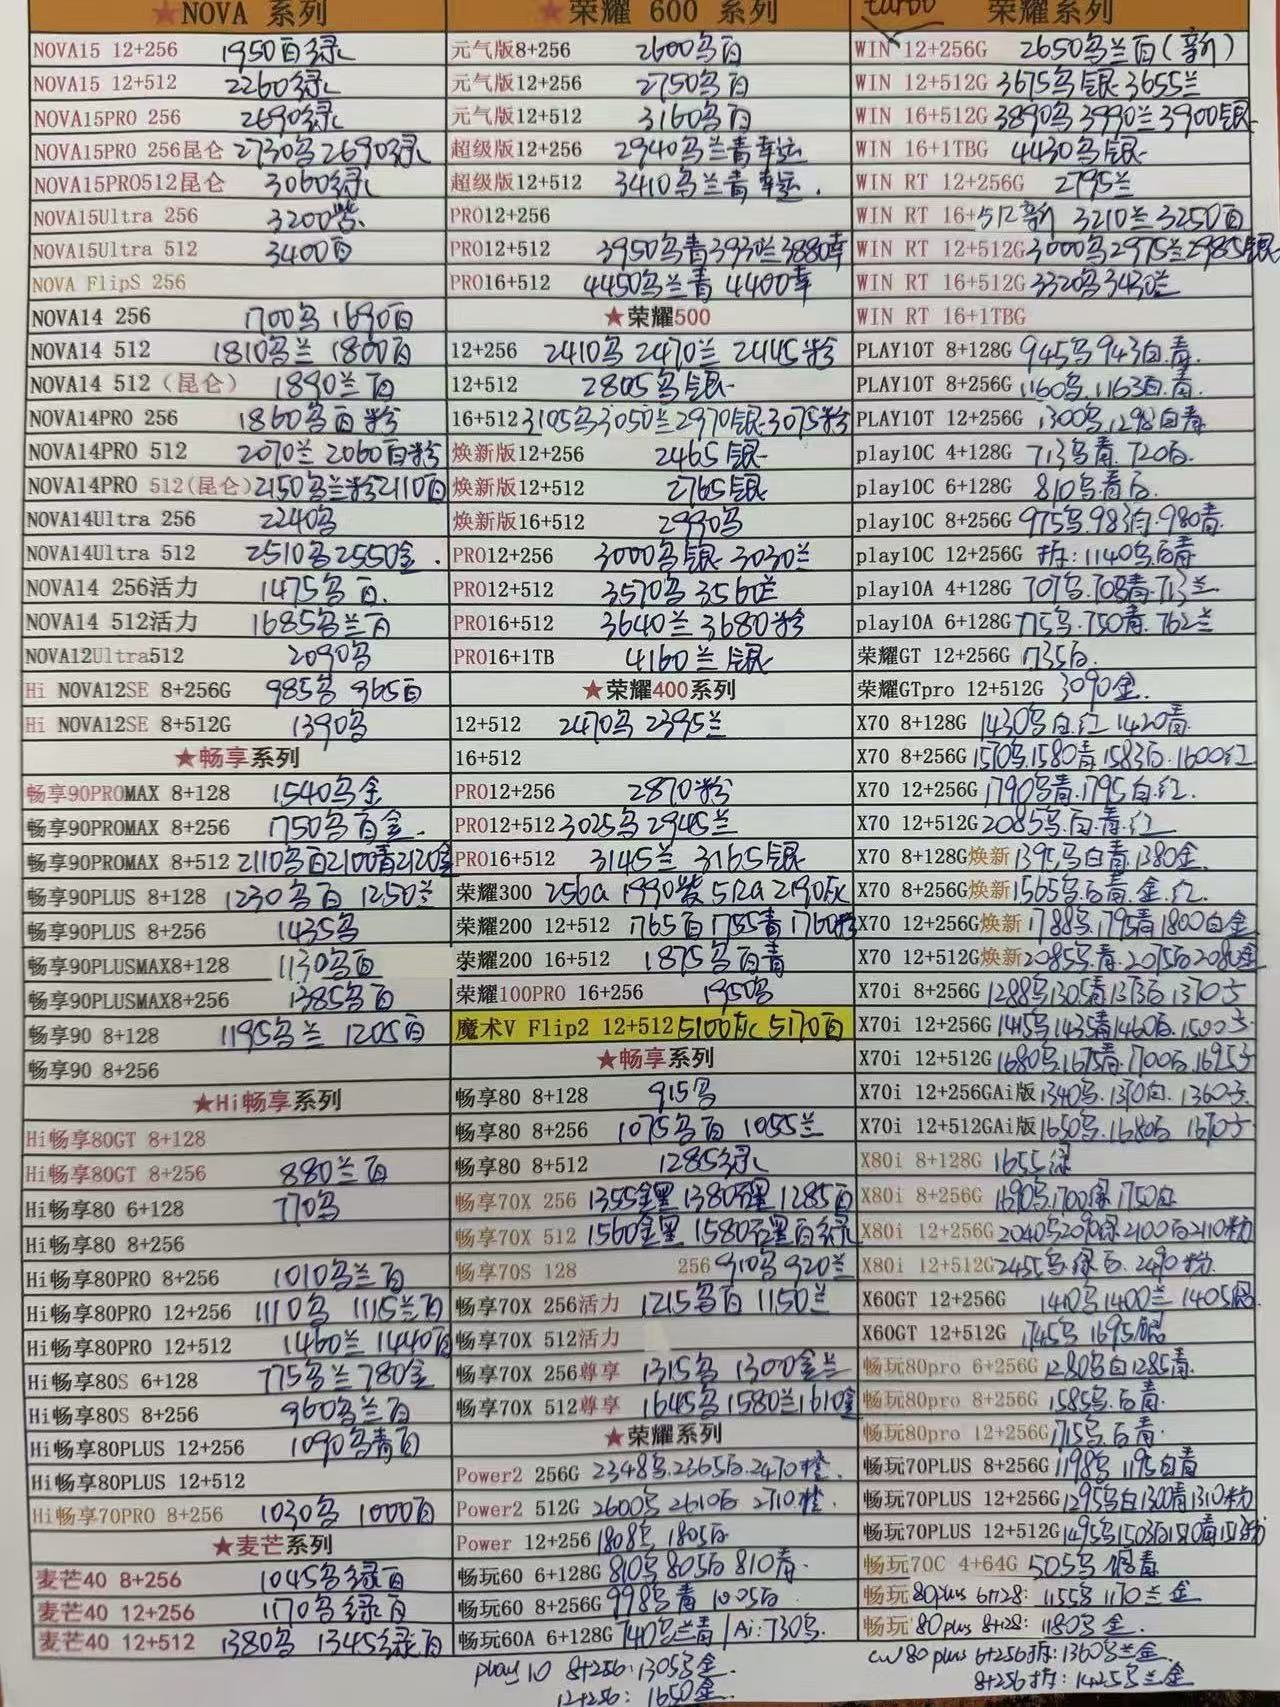 ★NOVA 系列
NOVA15 12+256 1950百绿
NOVA15 12+512 2260绿
NOVA15PRO 256 2690绿
NOVA15PRO 256昆仑 2730乌2690绿
NOVA15PRO512昆仑 3060绿
NOVA15Ultra 256 3200紫
NOVA15Ultra 512 3400百
NOVA FlipS 256
NOVA14 256 1700乌 1690百
NOVA14 512 1810乌兰 1800百
NOVA14 512（昆仑） 1890兰百
NOVA14PRO 256 1860乌百粉
NOVA14PRO 512 2070兰 2060百粉
NOVA14PRO 512(昆仑) 2150乌兰粉2110百
NOVA14Ultra 256 2240乌
NOVA14Ultra 512 2510乌2550金.
NOVA14 256活力 1475乌百.
NOVA14 512活力 1685乌兰百
NOVA12Ultra512 2090乌
Hi NOVA12SE 8+256G 985乌 965百
Hi NOVA12SE 8+512G 1390乌
★畅享系列
畅享90PROMAX 8+128 1540乌金
畅享90PROMAX 8+256 1750乌百金.
畅享90PROMAX 8+512 2110乌百2100青2120金
畅享90PLUS 8+128 1230乌百 1250兰
畅享90PLUS 8+256 1435乌
畅享90PLUSMAX8+128 1130乌百
畅享90PLUSMAX8+256 1385乌百
畅享90 8+128 1195乌兰 1205百
畅享90 8+256
★Hi畅享系列
Hi畅享80GT 8+128
Hi畅享80GT 8+256 880兰百
Hi畅享80 6+128 770乌
Hi畅享80 8+256
Hi畅享80PRO 8+256 1010乌兰百
Hi畅享80PRO 12+256 1110乌 1115兰百
Hi畅享80PRO 12+512 1460兰 1440百
Hi畅享80S 6+128 775乌兰 780金
Hi畅享80S 8+256 960乌兰百
Hi畅享80PLUS 12+256 1090乌青百
Hi畅享80PLUS 12+512
Hi畅享70PRO 8+256 1030乌 1000百
★麦芒系列
麦芒40 8+256 1045乌绿百
麦芒40 12+256 1170乌绿百
麦芒40 12+512 1380乌 1345绿百
★荣耀 600 系列
元气版8+256 2600乌百
元气版12+256 2750乌百
元气版12+512 3160乌百
超级版12+256 2940乌兰青幸运
超级版12+512 3410乌兰青幸运.
PRO12+256
PRO12+512 3950乌青3930兰3880幸
PRO16+512 4450乌兰青 4400幸
★荣耀500
12+256 2410乌 2470兰 2445粉
12+512 2805乌银
16+512 3105乌3050兰2970银3075粉
焕新版12+256 2465银
焕新版12+512 2765银
焕新版16+512 2990乌
PRO12+256 3000乌银 3030兰
PRO12+512 3570乌 3560兰
PRO16+512 3640兰 3680粉
PRO16+1TB 4160兰银
★荣耀400系列
12+512 2470乌 2395兰
16+512
PRO12+256 2870粉
PRO12+512 3025乌 2945兰
PRO16+512 3145兰 3165银
荣耀300 256G 1990紫 512G 2190灰
荣耀200 12+512 1765百 1755青 1760粉
荣耀200 16+512 1875乌百青
荣耀100PRO 16+256 1950乌
魔术V Flip2 12+512 5100灰 5170百
★畅享系列
畅享80 8+128 915乌
畅享80 8+256 1075乌百 1055兰
畅享80 8+512 1285绿
畅享70X 256 1355金黑 1380石墨 1285百
畅享70X 512 1560金黑 1580石墨百绿
畅享70S 128 256 910乌 920兰
畅享70X 256活力 1215乌百 1150兰
畅享70X 512活力
畅享70X 256尊享 1315乌 1300金兰
畅享70X 512尊享 1645乌1580兰1610金
★荣耀系列
Power2 256G 2348乌.2365白.2470橙.
Power2 512G 2600乌 2610白 2710.橙.
Power 12+256 1808乌 1805白
畅玩60 6+128G 810乌 805白 810青.
畅玩60 8+256G 998乌 青 1005白
畅玩60A 6+128G 740乌兰青/Ai:730乌.
play 10 8+256:1305乌金.
12+256: 1650金.
turbo 荣耀系列
WIN 12+256G 2650乌兰百(新)
WIN 12+512G 3675乌银 3655兰
WIN 16+512G 3890乌3990兰3900银
WIN 16+1TBG 4430乌银
WIN RT 12+256G 2795兰
WIN RT 16+512新 3210兰 3250百
WIN RT 12+512G 3000乌2975兰2985银
WIN RT 16+512G 3320乌3430兰
WIN RT 16+1TBG
PLAY10T 8+128G 945乌 943白.青.
PLAY10T 8+256G 1160乌.1163白.青.
PLAY10T 12+256G 1300乌.1298白青
play10C 4+128G 713乌青.720白.
play10C 6+128G 810乌.青白.
play10C 8+256G 975乌.983白.980青.
play10C 12+256G 拆:1140乌白青
play10A 4+128G 707乌.708青.713兰
play10A 6+128G 775乌.750青.762兰
荣耀GT 12+256G 1735白.
荣耀GTpro 12+512G 3090金.
X70 8+128G 1430乌白.红 1420青.
X70 8+256G 1570乌.1580青 1583白.1600红
X70 12+256G 1790乌青.1795白.红.
X70 12+512G 2085乌.白.青.红
X70 8+128G焕新 1395乌白青.1380金.
X70 8+256G焕新 1565乌白青.金.红.
X70 12+256G焕新 1788乌.1795青1800白金
X70 12+512G焕新2085乌.青.2075白2080金
X70i 8+256G 1288乌1305青1373白.1370子
X70i 12+256G 1415乌1435青1460白.1500子
X70i 12+512G 1680乌.1675青.1700白.1695子
X70i 12+256GAi版 1340乌.1370白.1360子.
X70i 12+512GAi版 1650乌.1680白 1670子
X80i 8+128G 1655绿
X80i 8+256G 1690乌.1700绿.1750白
X80i 12+256G 2040乌2090绿2100白2110粉
X80i 12+512G 2455乌.绿白.2490粉.
X60GT 12+256G 1410乌1400兰1405银
X60GT 12+512G 1745乌 1695银
畅玩80pro 6+256G 1280乌白1285青.
畅玩80pro 8+256G 1585乌.白青.
畅玩80pro 12+256G 1715乌.白青.
畅玩70PLUS 8+256G 1198乌 1195白青
畅玩70PLUS 12+256G 1295乌白1300青1310粉
畅玩70PLUS 12+512G 1495乌1503白1510青
畅玩70C 4+64G 505乌
畅玩80plus 6+128: 1155乌 1170兰 金
畅玩80plus 8+128: 1180乌 金.
cw80plus 6+256拆:1360乌兰金.
8+256拆: 1425乌兰金